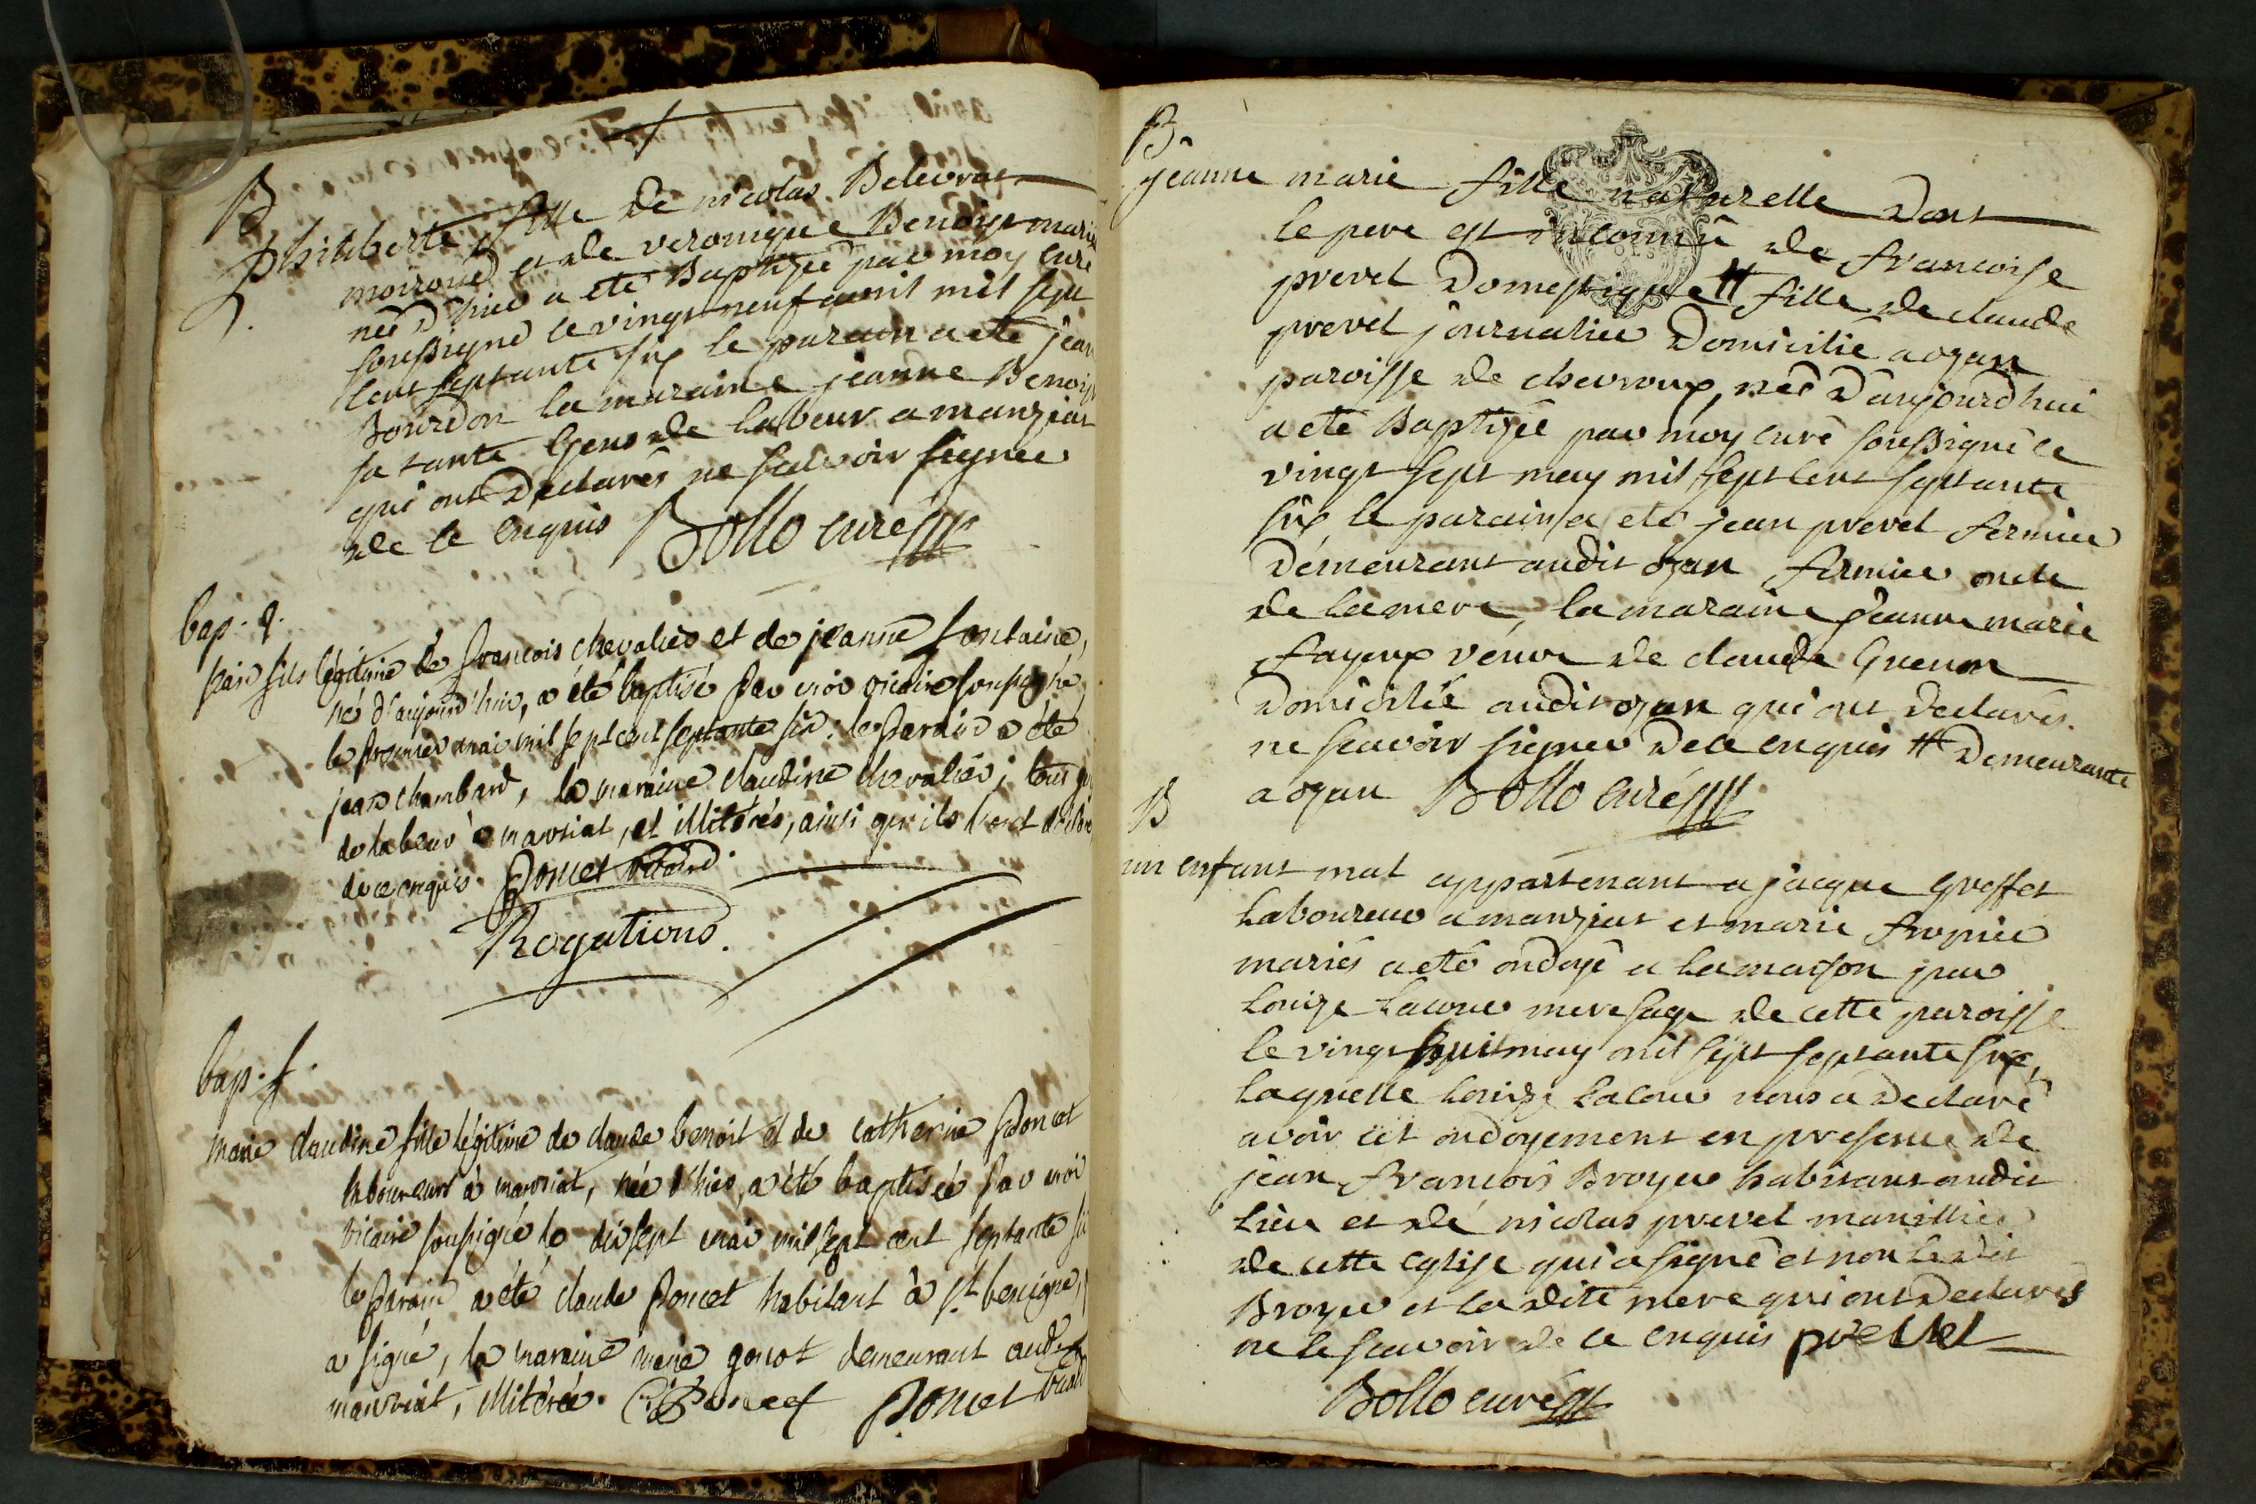 B
philiberte fille de nicolas Belevrat
moirond et de veronique Benoist mariés
née d'hier a eté Baptizée par moy curé
soussigné le vingt neuf avril mil sept
cent septante six le parain a eté jean
Bourdon la maraine jeanne Benoist
sa tante Gens de labeur a manziat
qui ont declarés ne sçavoir signer
de ce enquis Bollo curé
bap. 
fils légitime de françois chevalier et de jeanne fontaine,
né d'aujourd'hui, a été baptisé par moi vicaire soussigné
le premier mai mil sept cent septante six: le parain a été
jean chambard, la maraine claudine chevalier; tous
de labeur à manziat, et illiterés, ainsi qu'ils l'ont
de ce enquis. Poncet vicaire
Rogations.
bap. f.
marie claudine fille légitime de claude benoit et de catherine Poncet
laboureurs à manziat, née d'hier, a été baptisée par moi
vicaire soussigné le dix sept mai mil sept cent septante
le parain a été claude Poncet habitant à st benigne,
a signé, la maraine marie gonot demeurant aud.
manziat, illiterée. Poncet Poncet
B
jeanne marie fille naturelle dont
le pere est inconnû de francoise
prevel Domestique # fille de claude
prevel journalier Domicilié a ozan
paroisse de chevroux, née d'aujourd'hui
a eté Baptizée par moy curé soussigné le
vingt sept may mil sept cent septante
six le parain a eté jean prevel fermier
Demeurant audit ozan fermier oncle
de la mere, la maraine jeanne marie
fayoux veuve de claude Guenon
Domicilié audit ozan qui ont declarés
ne sçavoir signer de ce enquis # Demeurante
a ozan Bollo curé
B
un enfant mal appartenant a jacque Greffet
Laboureur a manziat et marie fropier
mariés a eté ondoyé a la maison par
Louize Lacour mere sage de cette paroisse
le vingt huit may mil sept septante six,
laquelle Louize Lacour nous a declaré
avoir cet ondoyement en presence de
jean francois Broyer habitant audit
Lieu et de nicolas prevel manillier
de cette eglise qui a signé et non le dit
Broyer et la dite mere qui ont declarés
ne le sçavoir de ce enquis prevel
Bollo curé